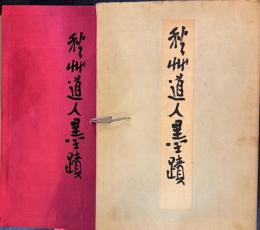 秋艸道人墨蹟
秋艸道人墨蹟